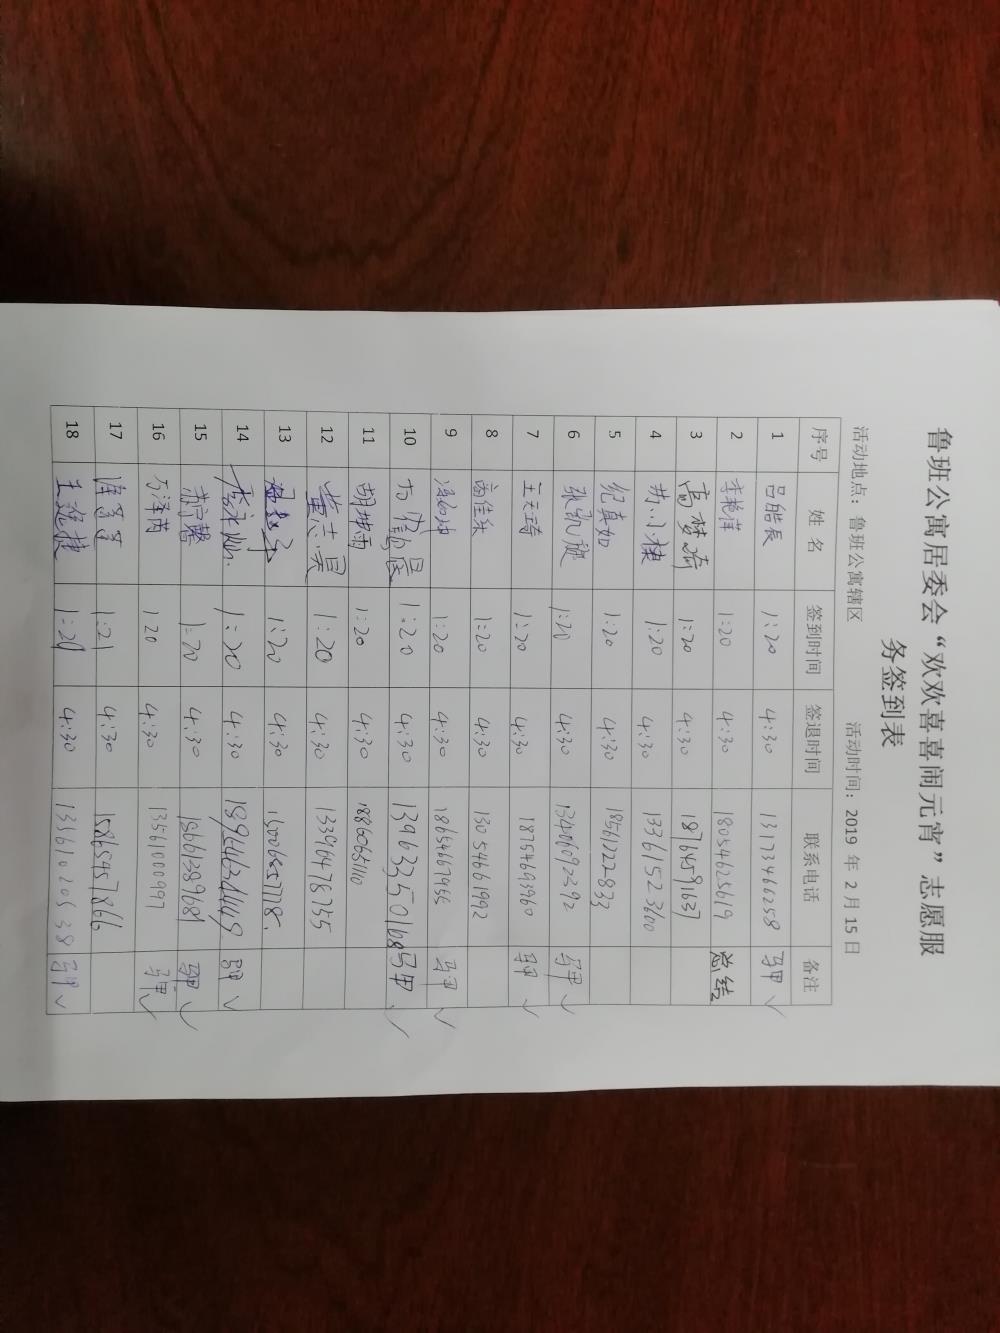 鲁班公寓居委会“欢欢喜喜闹元宵”志愿服
务签到表
活动地点：鲁班公寓辖区 活动时间：2019 年 2 月 15 日
序号 姓 名 签到时间 签退时间 联系电话 备注
1 吕皓辰 1:20 4:30 13173466258 马甲 ✓
2 李艳萍 1:20 4:30 18054625619 总结
3 高梦琦 1:20 4:30 18764591637
4 1:20 4:30 13361523600
5 纪真如 1:20 4:30 18561722833
6 张凯 1:20 4:30 13406092392 马甲 ✓
7 王天琦 1:20 4:30 18754693960 马甲 ✓
8 高佳乐 1:20 4:30 13054661992
9 1:20 4:30 18654667966 马甲 ✓
10 1:20 4:30 13963350168 马甲 ✓
11 胡坤雨 1:20 4:30 18860651110
12 黄志昊 1:20 4:30 13396478755
13 1:20 4:30
14 李永 1:20 4:30 马甲 ✓
15 苏馨 1:20 4:30 18661389681 马甲 ✓
16 万泽芮 1 20 4:30 13561000997 马甲 ✓
17 1:21 4:30 15865457866
18 王 捷 1:21 4:30 13561020538 马甲 ✓